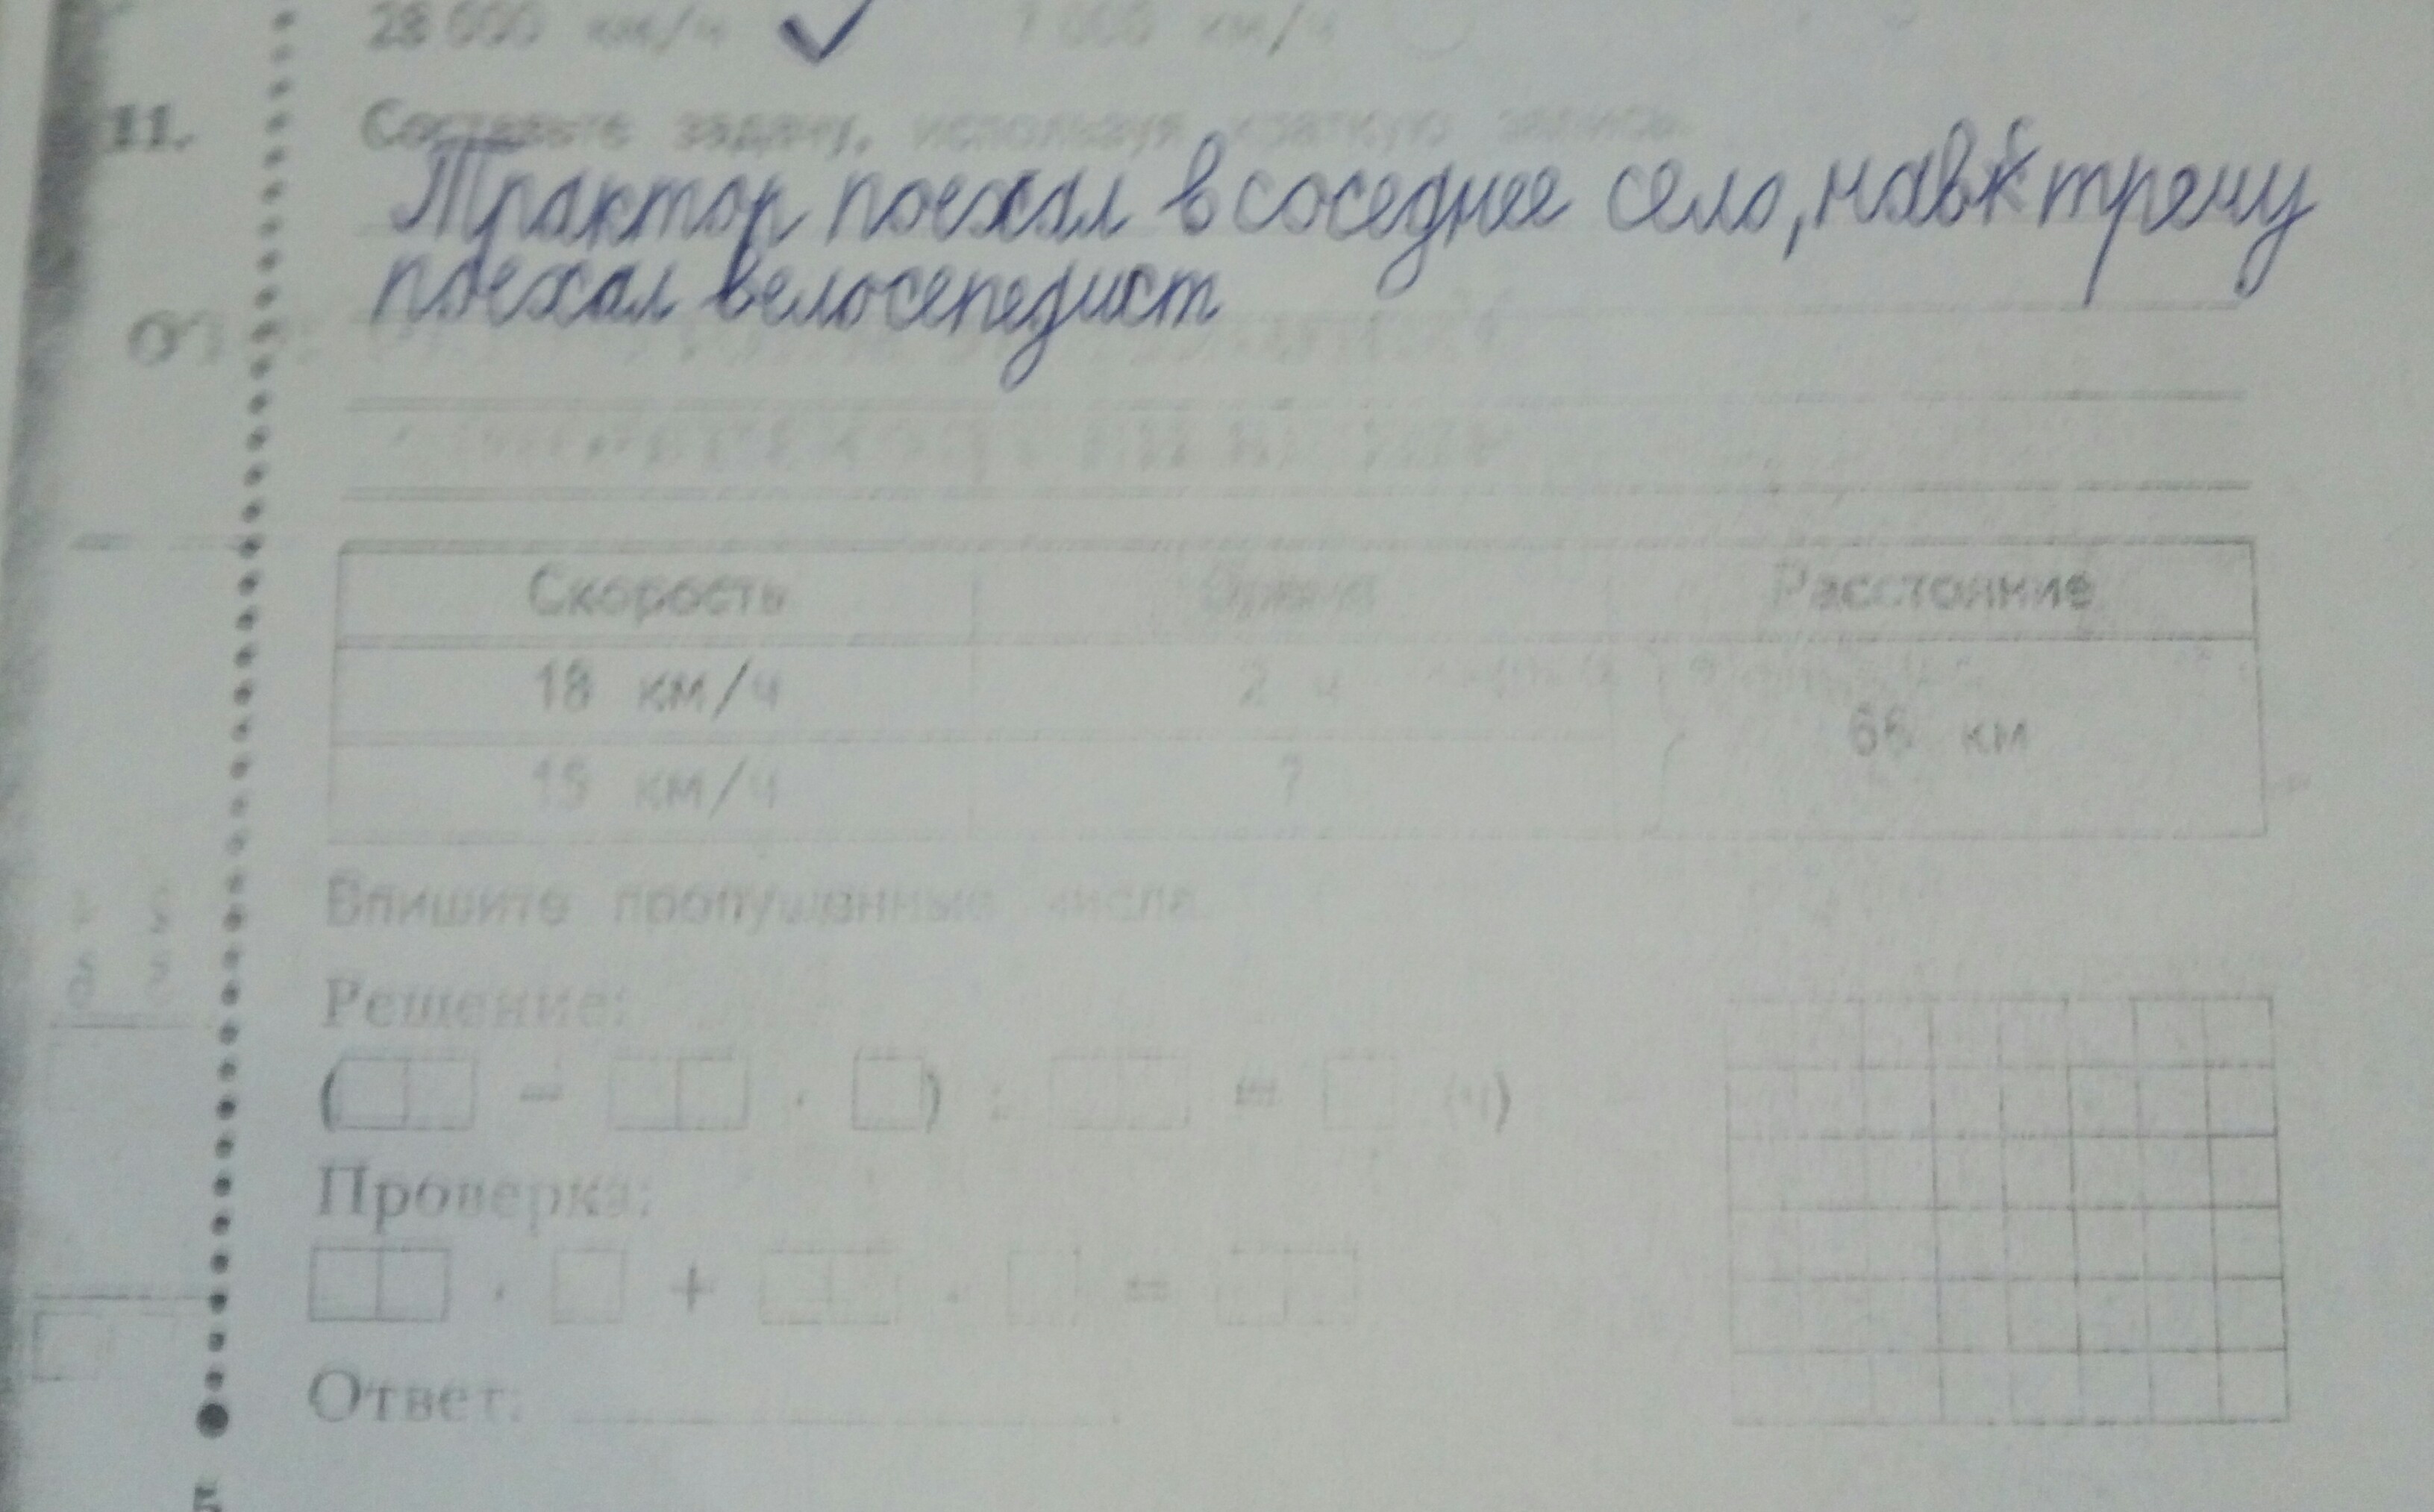 28 000 км/ч 7 000 км/ч
11. Составьте задачу, используя краткую запись.
Трактор поехал в соседнее село, навстречу
поехал велосепедист
Скорость Время Расстояние
18 км/ч 2 ч
66 км
15 км/ч ?
Впишите пропущенные числа.
Решение:
( − · ) : = (ч)
Проверка:
· + · =
Ответ: